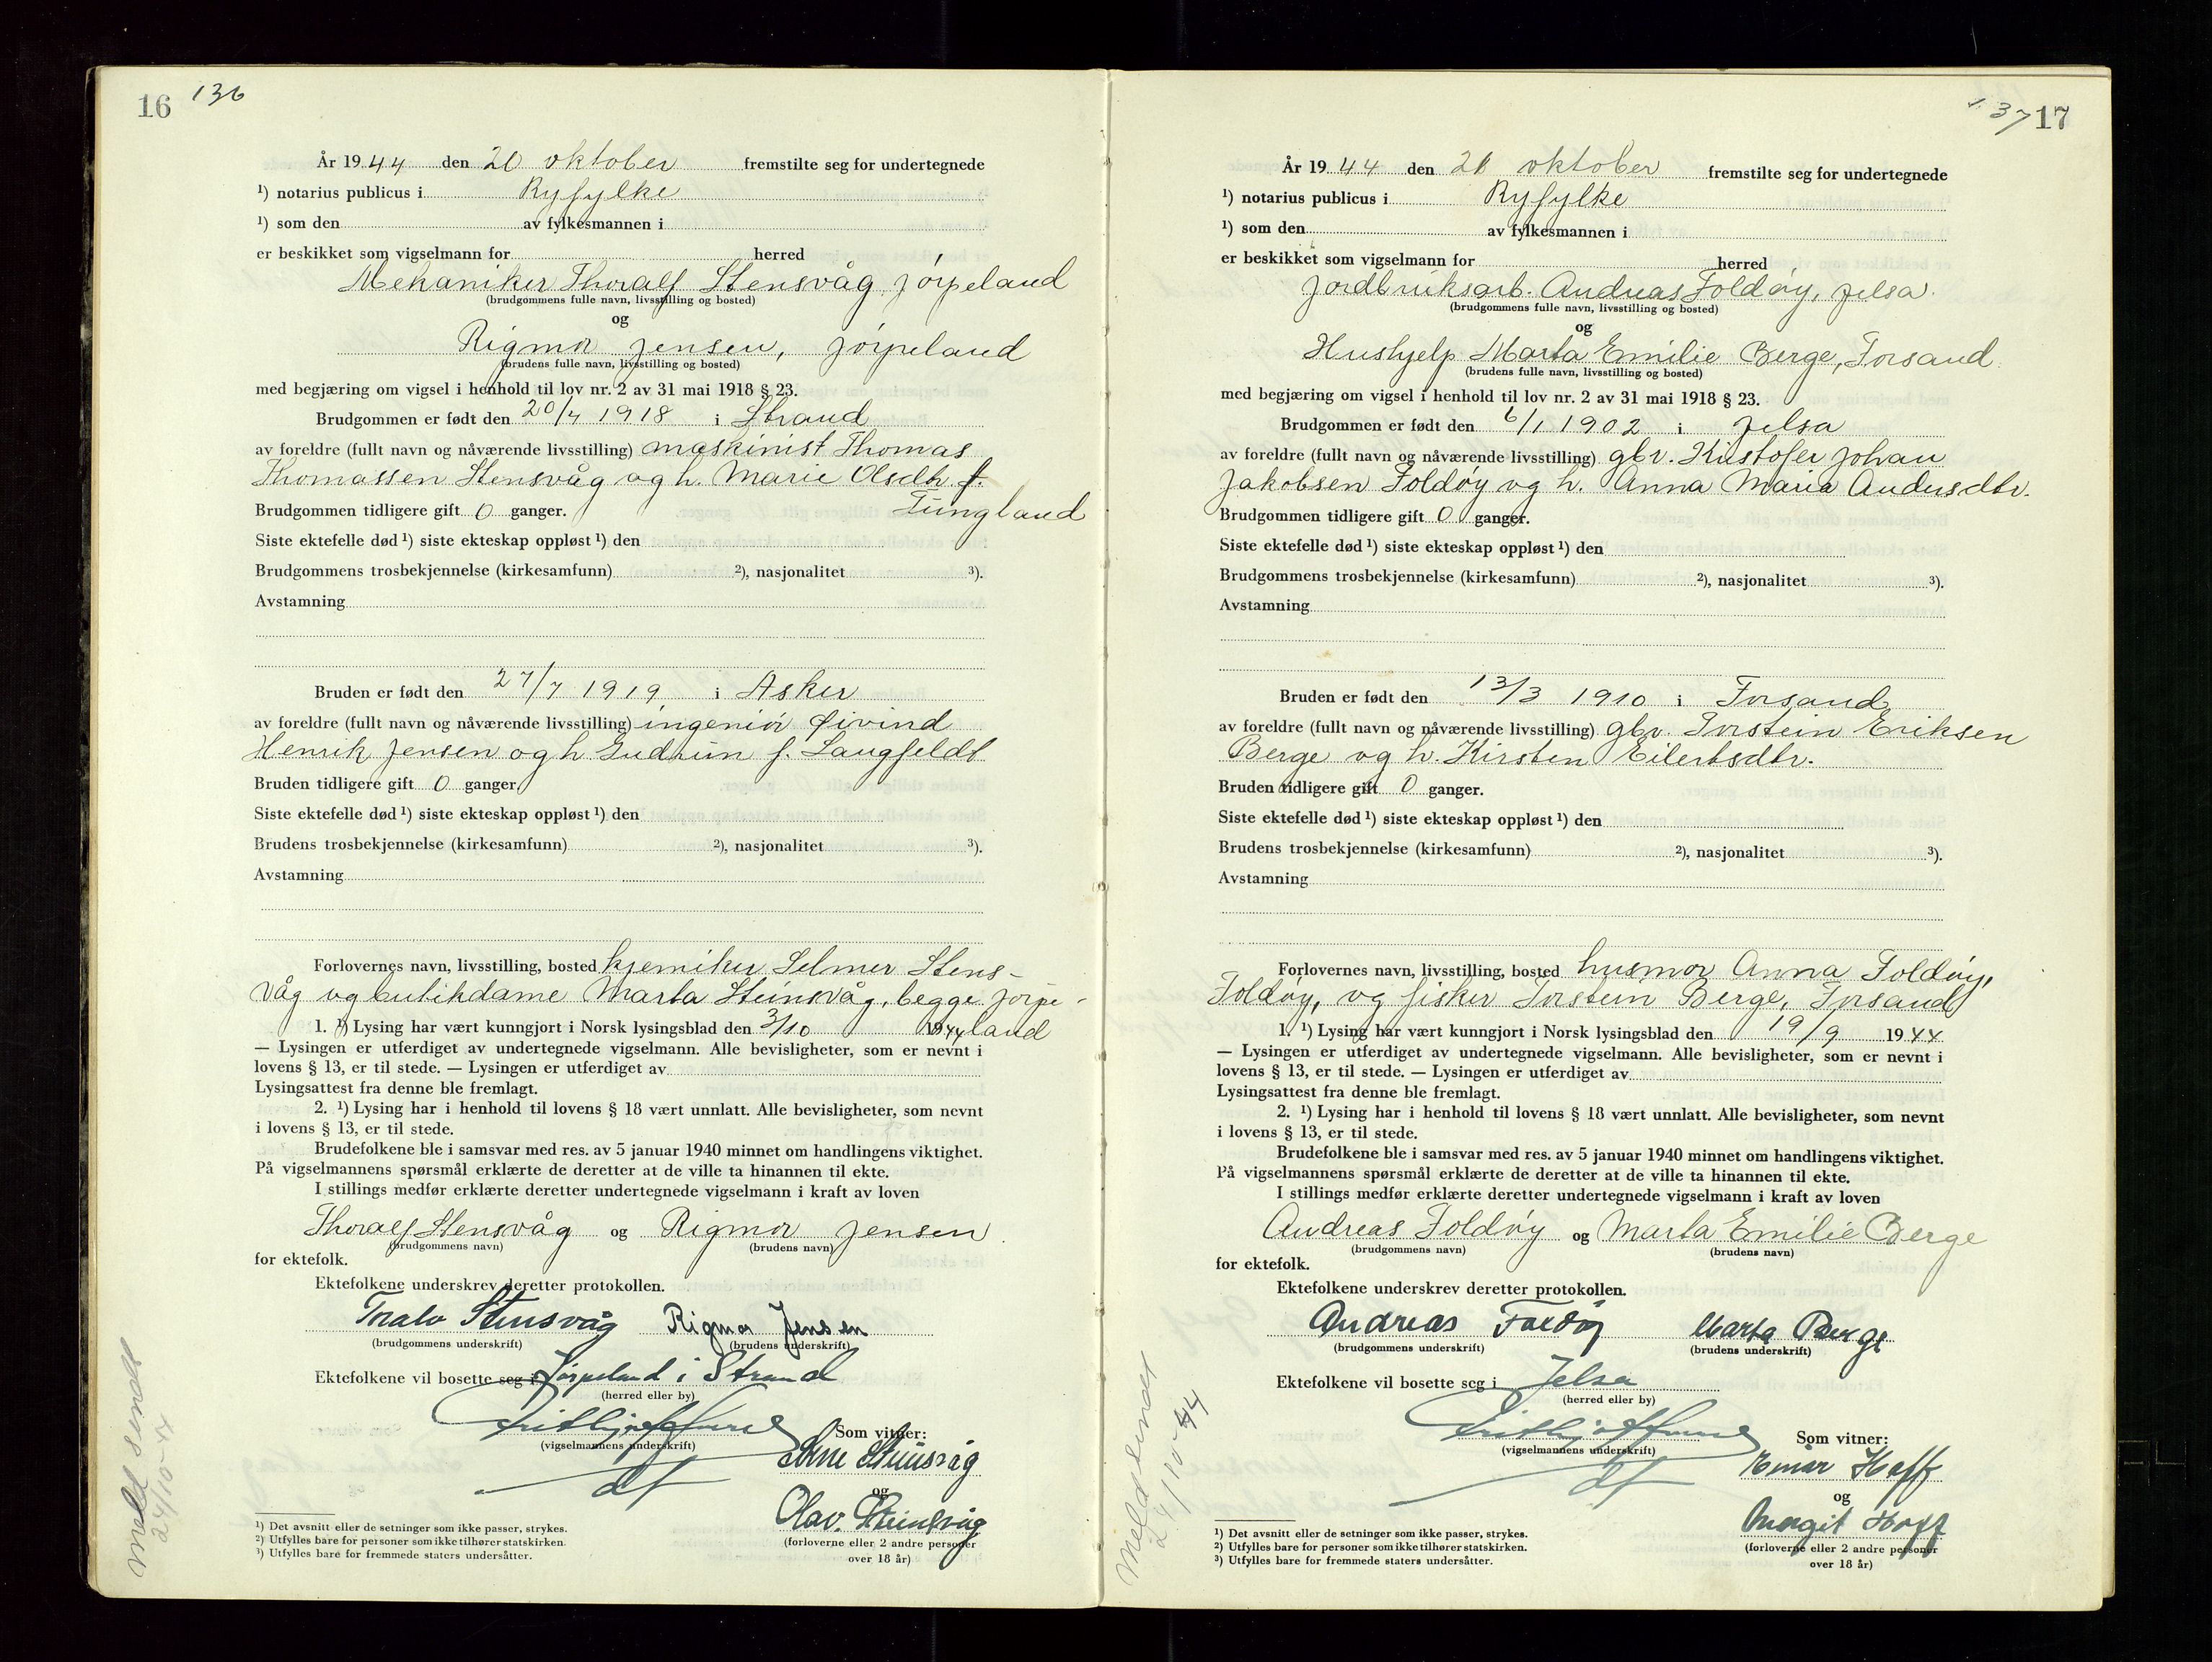 16 136
År 1944 den 20 oktober fremstilte seg for undertegnede
¹) notarius publicus i Ryfylke
¹) som den av fylkesmannen i
er beskikket som vigselmann for herred
Mekaniker Thoralf Stensvåg, Jørpeland
(brudgommens fulle navn, livsstilling og bosted)
og
Rigmor Jensen, Jørpeland
(brudens fulle navn, livsstilling og bosted)
med begjæring om vigsel i henhold til lov nr. 2 av 31 mai 1918 § 23.
Brudgommen er født den 20/4 1918 i Strand
av foreldre (fullt navn og nåværende livsstilling) maskinist Thomas
Thomassen Stensvåg og h. Marie Olsdtr. f.
Tungland
Brudgommen tidligere gift 0 ganger.
Siste ektefelle død ¹) siste ekteskap oppløst ¹) den
Brudgommens trosbekjennelse (kirkesamfunn) ²), nasjonalitet ³).
Avstamning
Bruden er født den 27/7 1919 i Asker
av foreldre (fullt navn og nåværende livsstilling) ingeniør Øivind
Henrik Jensen og h Gudrun f. Langfeldt
Bruden tidligere gift 0 ganger.
Siste ektefelle død ¹) siste ekteskap oppløst ¹) den
Brudens trosbekjennelse (kirkesamfunn) ²), nasjonalitet ³).
Avstamning
Forlovernes navn, livsstilling, bosted kjemiker Selmer Stens-
våg og butikdame Marta Steinsvåg, begge Jørpe-
land
1. ¹) Lysing har vært kunngjort i Norsk lysingsblad den 3/10 1944
— Lysingen er utferdiget av undertegnede vigselmann. Alle bevisligheter, som er nevnt i
lovens § 13, er til stede. — Lysingen er utferdiget av
Lysingsattest fra denne ble fremlagt.
2. ¹) Lysing har i henhold til lovens § 18 vært unnlatt. Alle bevisligheter, som nevnt
i lovens § 13, er til stede.
Brudefolkene ble i samsvar med res. av 5 januar 1940 minnet om handlingens viktighet.
På vigselmannens spørsmål erklærte de deretter at de ville ta hinannen til ekte.
I stillings medfør erklærte deretter undertegnede vigselmann i kraft av loven
Thoralf Stensvåg og Rigmor Jensen
(brudgommens navn) (brudens navn)
for ektefolk.
Ektefolkene underskrev deretter protokollen.
Stensvåg Rigmor Jensen
(brudgommens underskrift) (brudens underskrift)
Ektefolkene vil bosette seg i Jørpeland i Strand
(herred eller by)
(vigselmannens underskrift)
Som vitner:
Arne Steinsvåg
og
Olav Steinsvåg
(forloverne eller 2 andre personer
over 18 år)
¹) Det avsnitt eller de setninger som ikke passer, strykes.
²) Utfylles bare for personer som ikke tilhører statskirken.
³) Utfylles bare for fremmede staters undersåtter.
Meld sendt
24/10-44
137 17
År 1944 den 21 oktober fremstilte seg for undertegnede
¹) notarius publicus i Ryfylke
¹) som den av fylkesmannen i
er beskikket som vigselmann for herred
Jordbruksarb. Andreas Foldøy, Jelsa.
(brudgommens fulle navn, livsstilling og bosted)
og
Hushjelp Marta Emilie Berge, Forsand
(brudens fulle navn, livsstilling og bosted)
med begjæring om vigsel i henhold til lov nr. 2 av 31 mai 1918 § 23.
Brudgommen er født den 6/1 1902 i Jelsa
av foreldre (fullt navn og nåværende livsstilling) gbr. Kristofer Johan
Jakobsen Foldøy og h. Anna Maria Andersdtr.
Brudgommen tidligere gift 0 ganger.
Siste ektefelle død ¹) siste ekteskap oppløst ¹) den
Brudgommens trosbekjennelse (kirkesamfunn) ²), nasjonalitet ³).
Avstamning
Bruden er født den 13/3 1910 i Forsand
av foreldre (fullt navn og nåværende livsstilling) gbr. Torstein Eriksen
Berge og h. Kirsten Eilertsdtr.
Bruden tidligere gift 0 ganger.
Siste ektefelle død ¹) siste ekteskap oppløst ¹) den
Brudens trosbekjennelse (kirkesamfunn) ²), nasjonalitet ³).
Avstamning
Forlovernes navn, livsstilling, bosted husmor Anna Foldøy,
Foldøy, og fisker Torstein Berge, Forsand
1. ¹) Lysing har vært kunngjort i Norsk lysingsblad den 19/9 1944
— Lysingen er utferdiget av undertegnede vigselmann. Alle bevisligheter, som er nevnt i
lovens § 13, er til stede. — Lysingen er utferdiget av
Lysingsattest fra denne ble fremlagt.
2. ¹) Lysing har i henhold til lovens § 18 vært unnlatt. Alle bevisligheter, som nevnt
i lovens § 13, er til stede.
Brudefolkene ble i samsvar med res. av 5 januar 1940 minnet om handlingens viktighet.
På vigselmannens spørsmål erklærte de deretter at de ville ta hinannen til ekte.
I stillings medfør erklærte deretter undertegnede vigselmann i kraft av loven
Andreas Foldøy og Marta Emilie Berge
(brudgommens navn) (brudens navn)
for ektefolk.
Ektefolkene underskrev deretter protokollen.
Andreas Foldøy Marta Berge
(brudgommens underskrift) (brudens underskrift)
Ektefolkene vil bosette seg i Jelsa
(herred eller by)
(vigselmannens underskrift)
Som vitner:
Einar Hoff
og
Margit Hoff
(forloverne eller 2 andre personer
over 18 år)
¹) Det avsnitt eller de setninger som ikke passer, strykes.
²) Utfylles bare for personer som ikke tilhører statskirken.
³) Utfylles bare for fremmede staters undersåtter.
Meld sendt
24/10-44